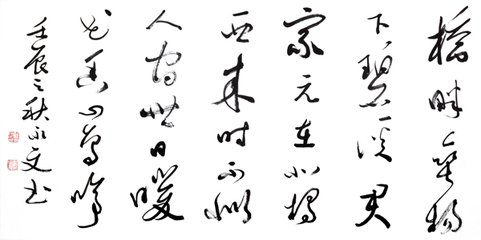 橋畔垂楊
下碧溪君
家元在北橋
西来时不似
人間世日暖
花香山鳥啼
壬辰之秋永文书